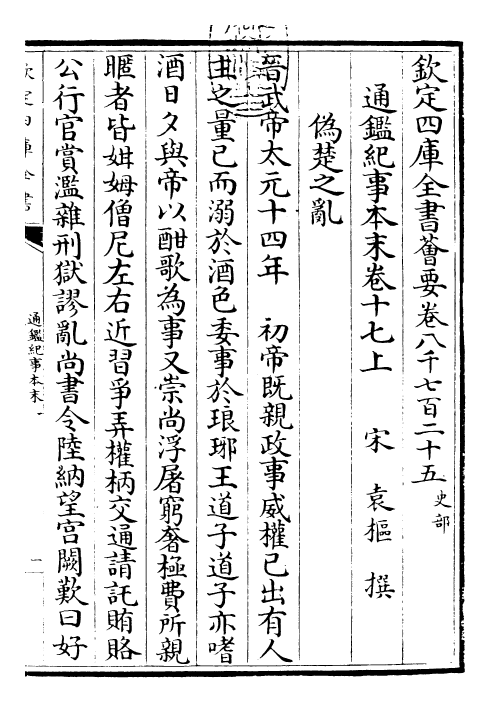 欽定四庫全書薈要卷八千七百二十五 史部
通鑑紀事本末卷十七上 宋 袁樞 撰
偽楚之亂
晉武帝太元十四年 初帝既親政事威權已出有人
主之量已而溺於酒色委事於琅琊王道子道子亦嗜
酒日夕與帝以酣歌為事又崇尚浮屠窮奢極費所親
暱者皆㛐姆僧尼左右近習爭弄權柄交通請託賄賂
公行官賞濫雜刑獄謬亂尚書令陸納望宮闕歎曰好
欽定四庫全書
通鑑紀事本末
一